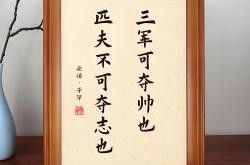 三军可夺帅也
匹夫不可夺志也
论语·子罕